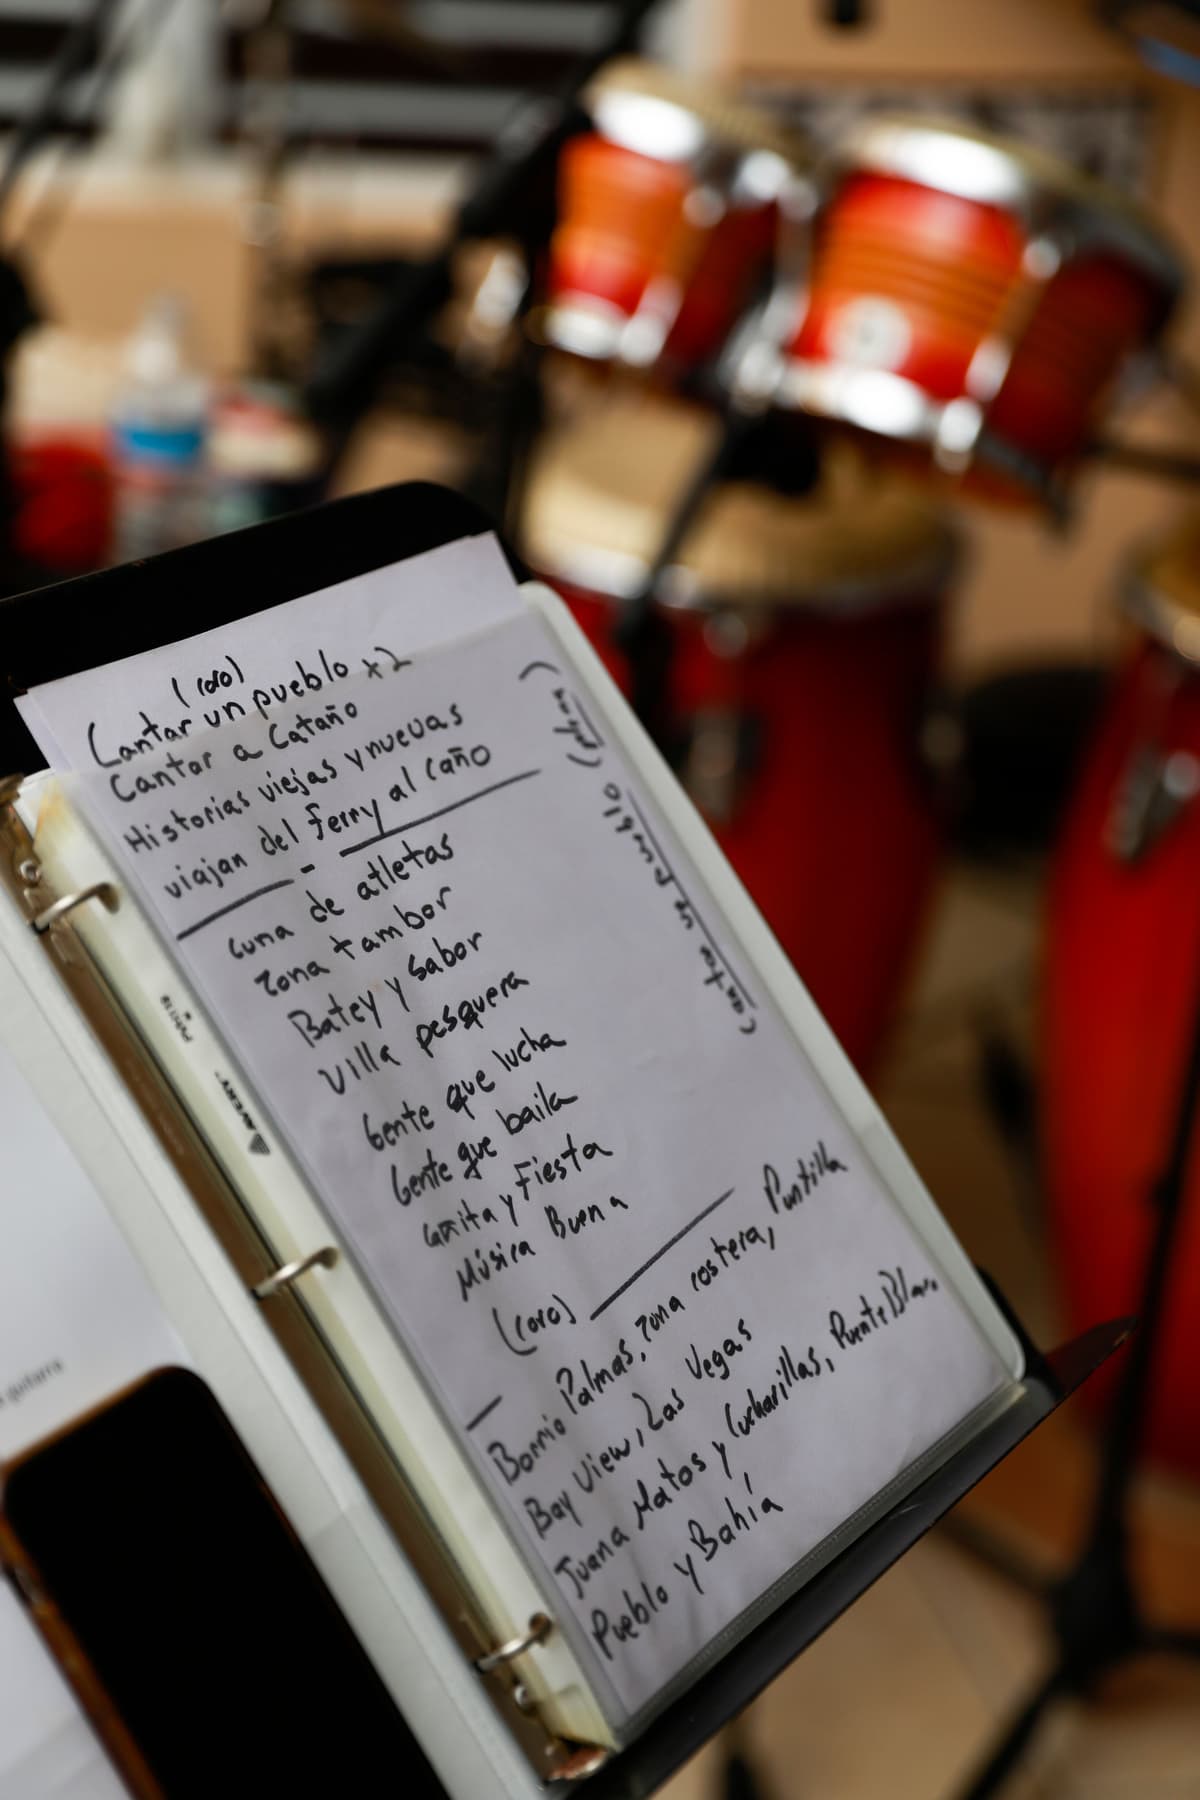 (coro)
Cantar un pueblo x2
Cantar a Cataño
Historias viejas y nuevas
viajan del ferry al caño
cuna de atletas
zona tambor
Batey y sabor
Villa pesquera
Gente que lucha
Gente que baila
Gaita y Fiesta
Música Buena
(coro)
Barrio Palmas, zona costera, Puntilla
Bay View, Las Vegas
Juana Matos y Cucharillas, Puente Blanco
Pueblo y Bahía
Cantar un Pueblo
AVERY
guitarra